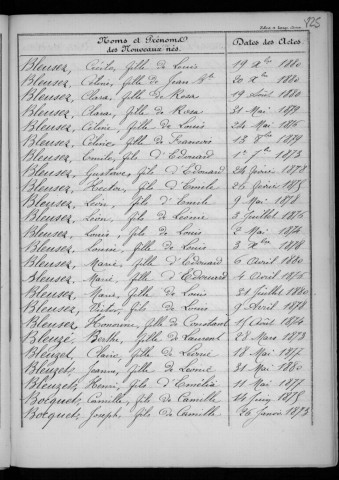 125
Noms et Prénoms
des Nouveaux nés.
Dates des Actes.
Bleusez, Cécile, fille de Louis 19 Xbre 1880
Bleusez, Céline, fille de Jean Bte 20 Xbre 1880
Bleusez, Clara, fille de Rosa 19 Août 1880
Bleusez, Clara, fille de Rosa 31 Mai 1879
Bleusez, Céline, fille de Louis 24 Mai 1876
Bleusez, Céline, fille de Francois 13 8bre 1879
Bleusez, Emile, fils d'Edouard 1er 1873
Bleusez, Gustave, fils d'Edouard 24 février 1878
Bleusez, Hector, fils d'Emile 26 février 1875
Bleusez, Léon, fils d'Emile 9 Mai 1878
Bleusez, Léon, fils de Léonie 3 Juillet 1876
Bleusez, Louis, fils de Louis 2 Mai 1874
Bleusez, Louise, fille de Louis 3 Xbre 1878
Bleusez, Marie, fille d'Edouard 6 Avril 1880
Bleusez, Marie, fille d'Edouard 4 Avril 1876
Bleusez, Marie, fille de Louis 31 Juillet 1880
Bleusez, Victor, fils de Louis 9 Avril 1878
Bleusez, Honorine, fille de Constant 15 Août 1874
Bleuzé, Berthe, fille de Laurent 28 Mars 1873
Bleuzet, Claire, fille de 18 Mai 1877
Bleuzet, Jeanne, fille de Léonie 31 Mai 1880
Bleuzet, Henri, fils d'Emélie 11 Mai 1877
Bocquet, Camille, fils de Camille 14 Juin 1875
Bocquet, Joseph, fils de Camille 26 Janvier 1873